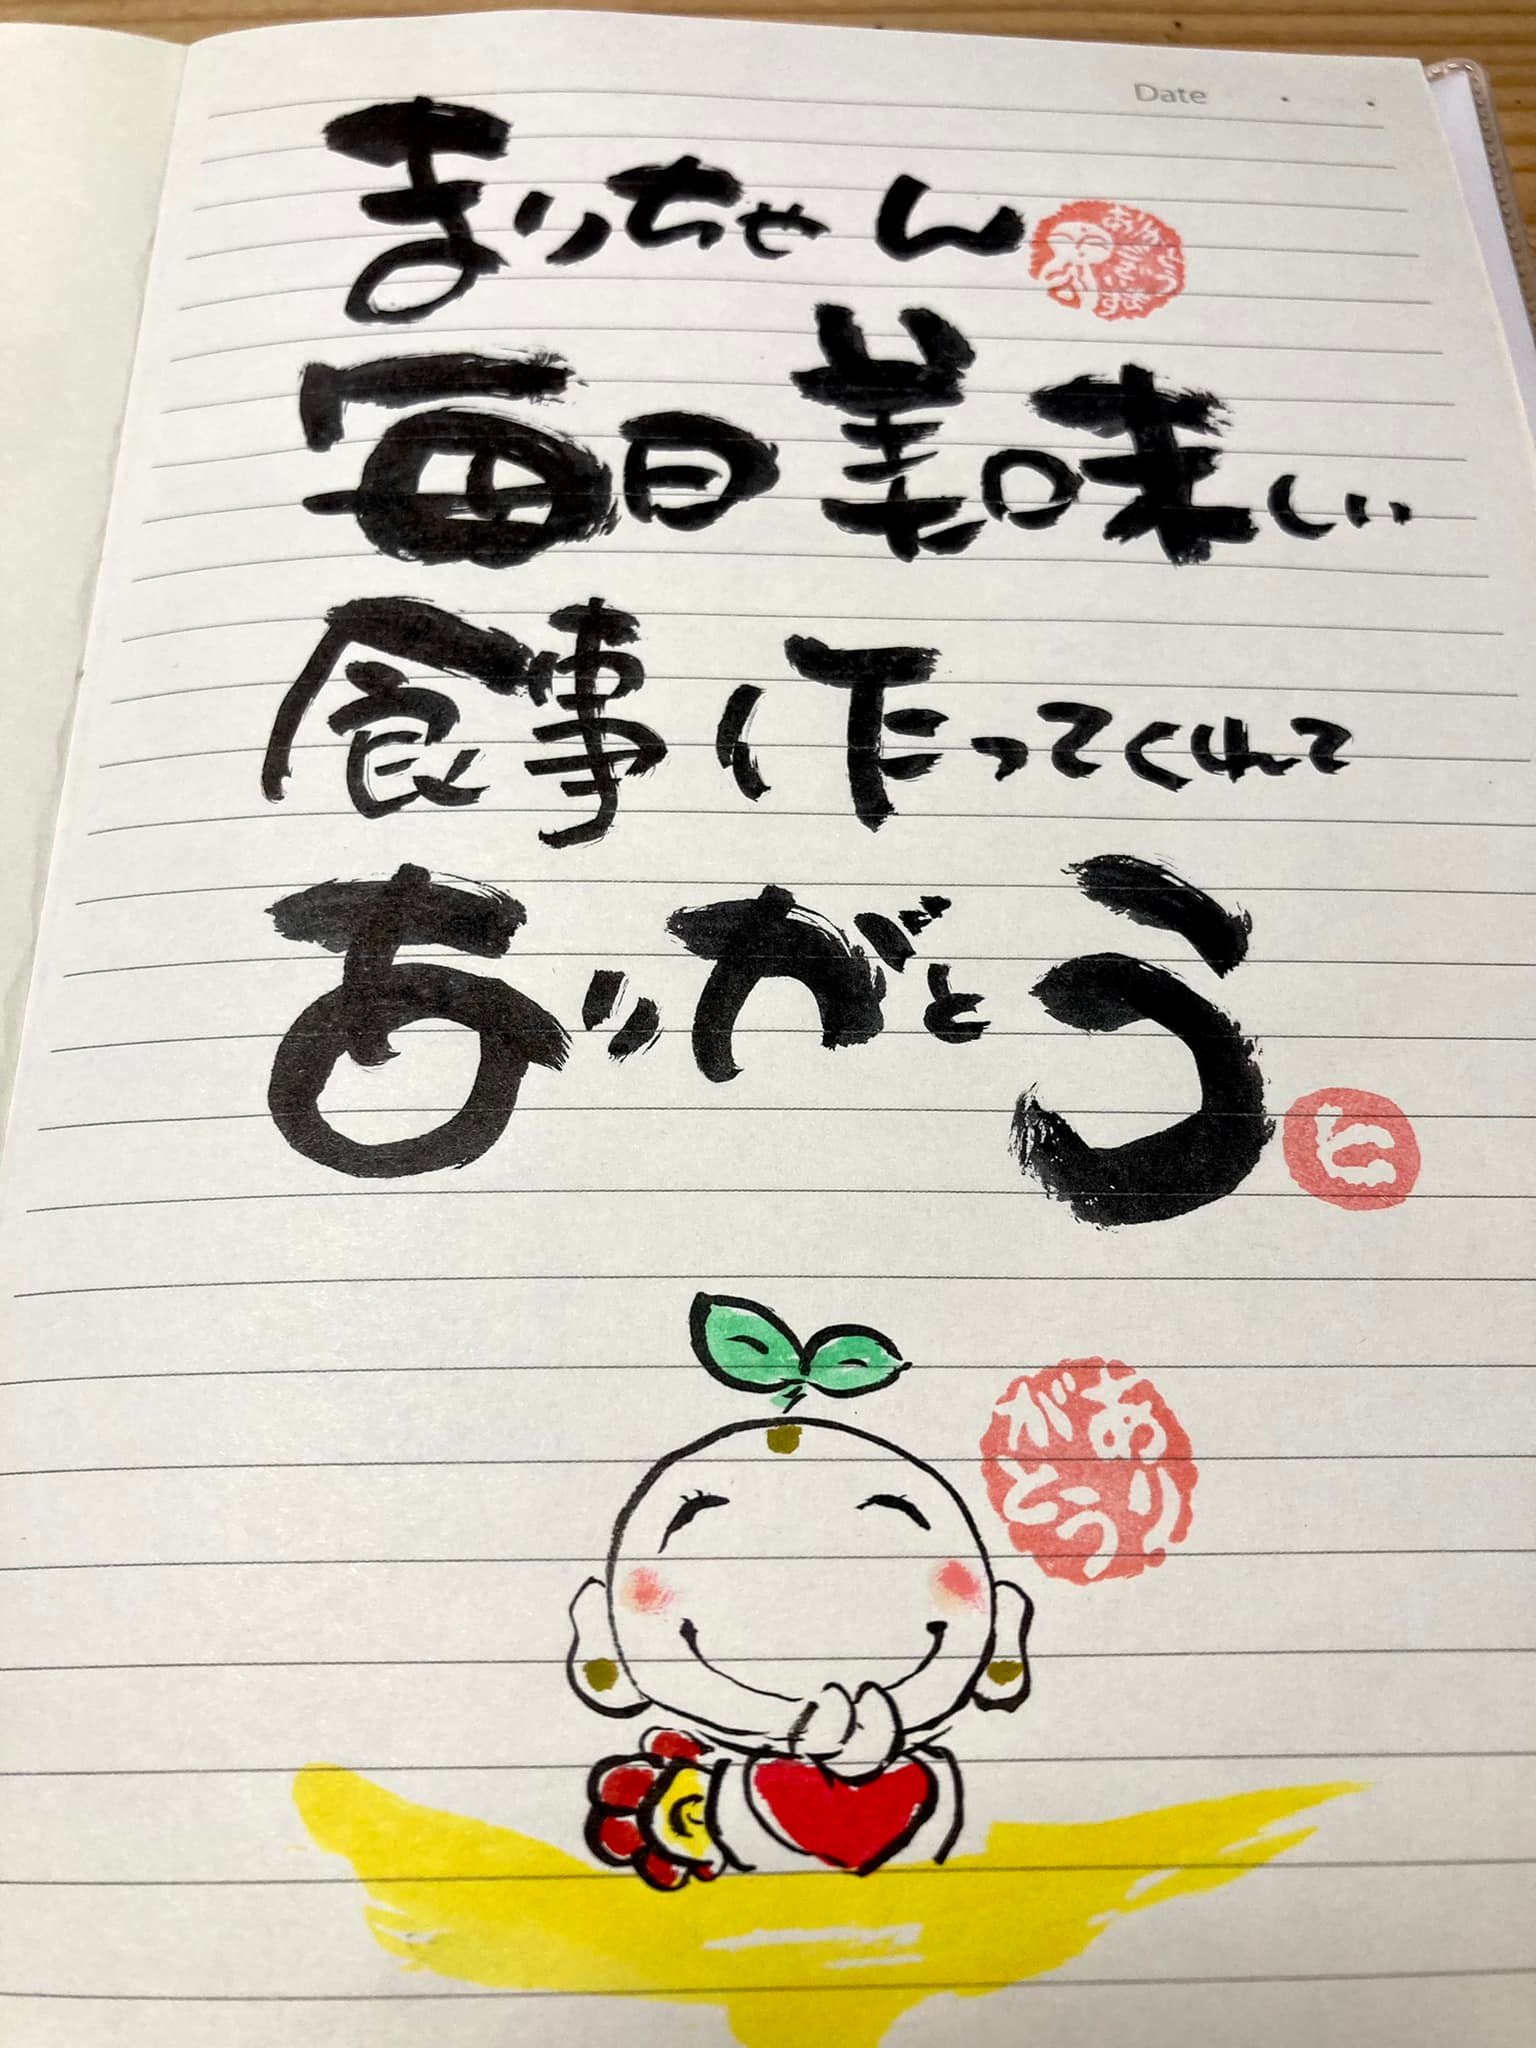 Date
まりちゃん
ありがとうございます
毎日美味しい
食事作ってくれて
ありがとう
ヒ
ありがとう